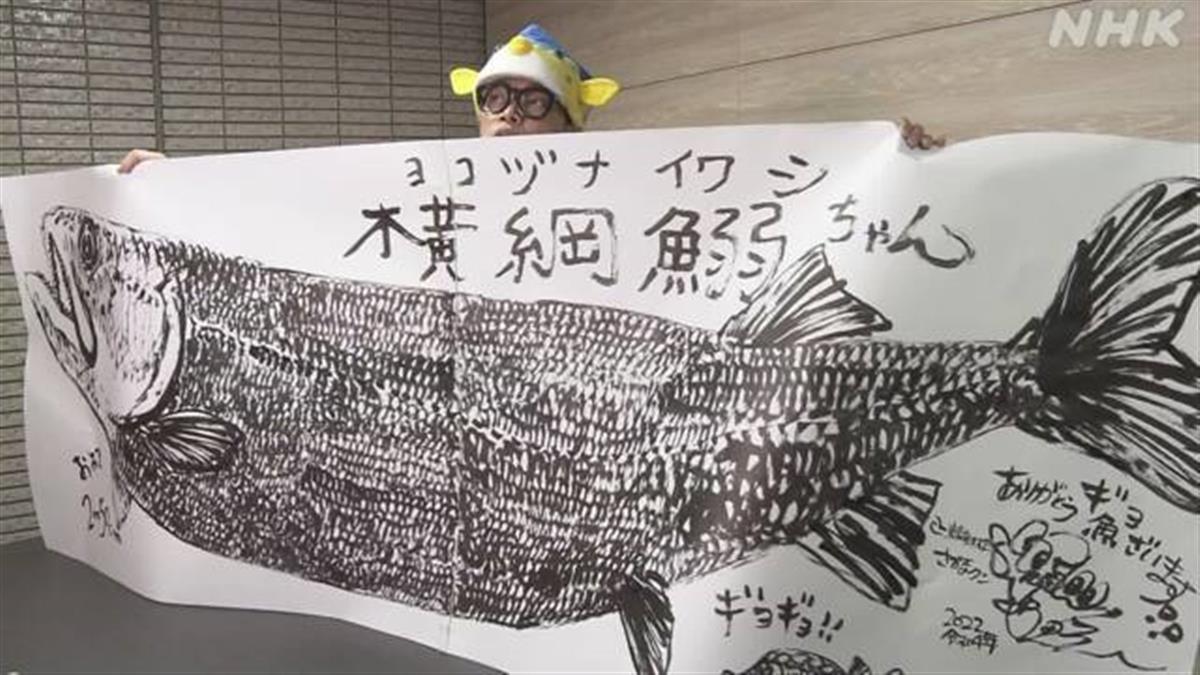 NHK
ヨコヅナ イワシ
横綱鰯ちゃん
おおきさ
2m5cm
ありがとうギョ
魚ざいます
さかなクン
2022
令和4年
ギョギョ!!